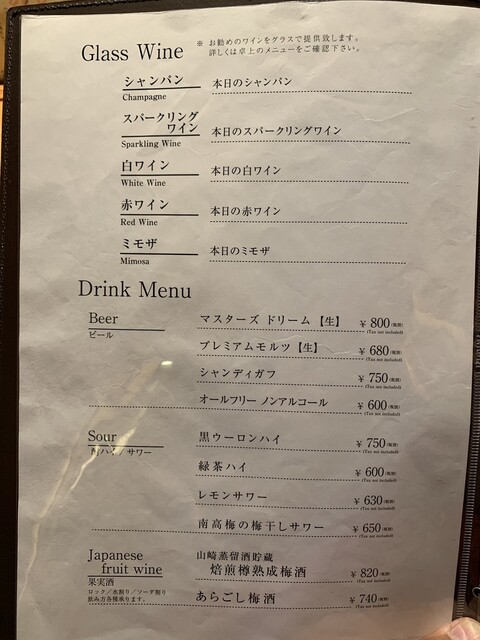 Glass Wine
※ お勧めのワインをグラスで提供致します。
詳しくは卓上のメニューをご確認下さい。
シャンパン 本日のシャンパン
Champagne
スパークリング
ワイン 本日のスパークリングワイン
Sparkling Wine
白ワイン 本日の白ワイン
White Wine
赤ワイン 本日の赤ワイン
Red Wine
ミモザ 本日のミモザ
Mimosa
Drink Menu
Beer マスターズ ドリーム【生】 ¥ 800(税別)
ビール (Tax not included)
プレミアムモルツ【生】 ¥ 680(税別)
(Tax not included)
シャンディガフ ¥ 750(税別)
(Tax not included)
オールフリー ノンアルコール ¥ 600(税別)
(Tax not included)
Sour 黒ウーロンハイ ¥ 750(税別)
酎ハイ/サワー (Tax not included)
緑茶ハイ ¥ 600(税別)
(Tax not included)
レモンサワー ¥ 630(税別)
(Tax not included)
南高梅の梅干しサワー ¥ 650(税別)
(Tax not included)
Japanese 山崎蒸留酒貯蔵
fruit wine 焙煎樽熟成梅酒 ¥ 820(税別)
果実酒 (Tax not included)
ロック/水割り/ソーダ割り
飲み方各種承ります。 あらごし梅酒 ¥ 740(税別)
(Tax not included)